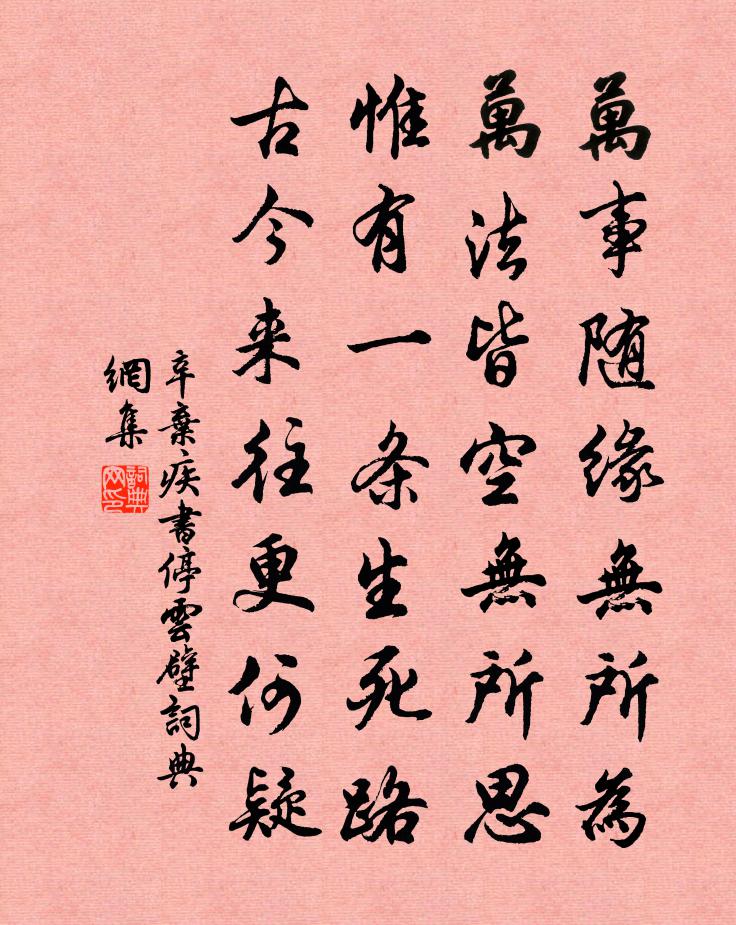 萬事随缘無所為
萬法皆空無所思
惟有一条生死路
古今来往更何疑
辛棄疾書停雲壁詞典
網集
詞典
网印